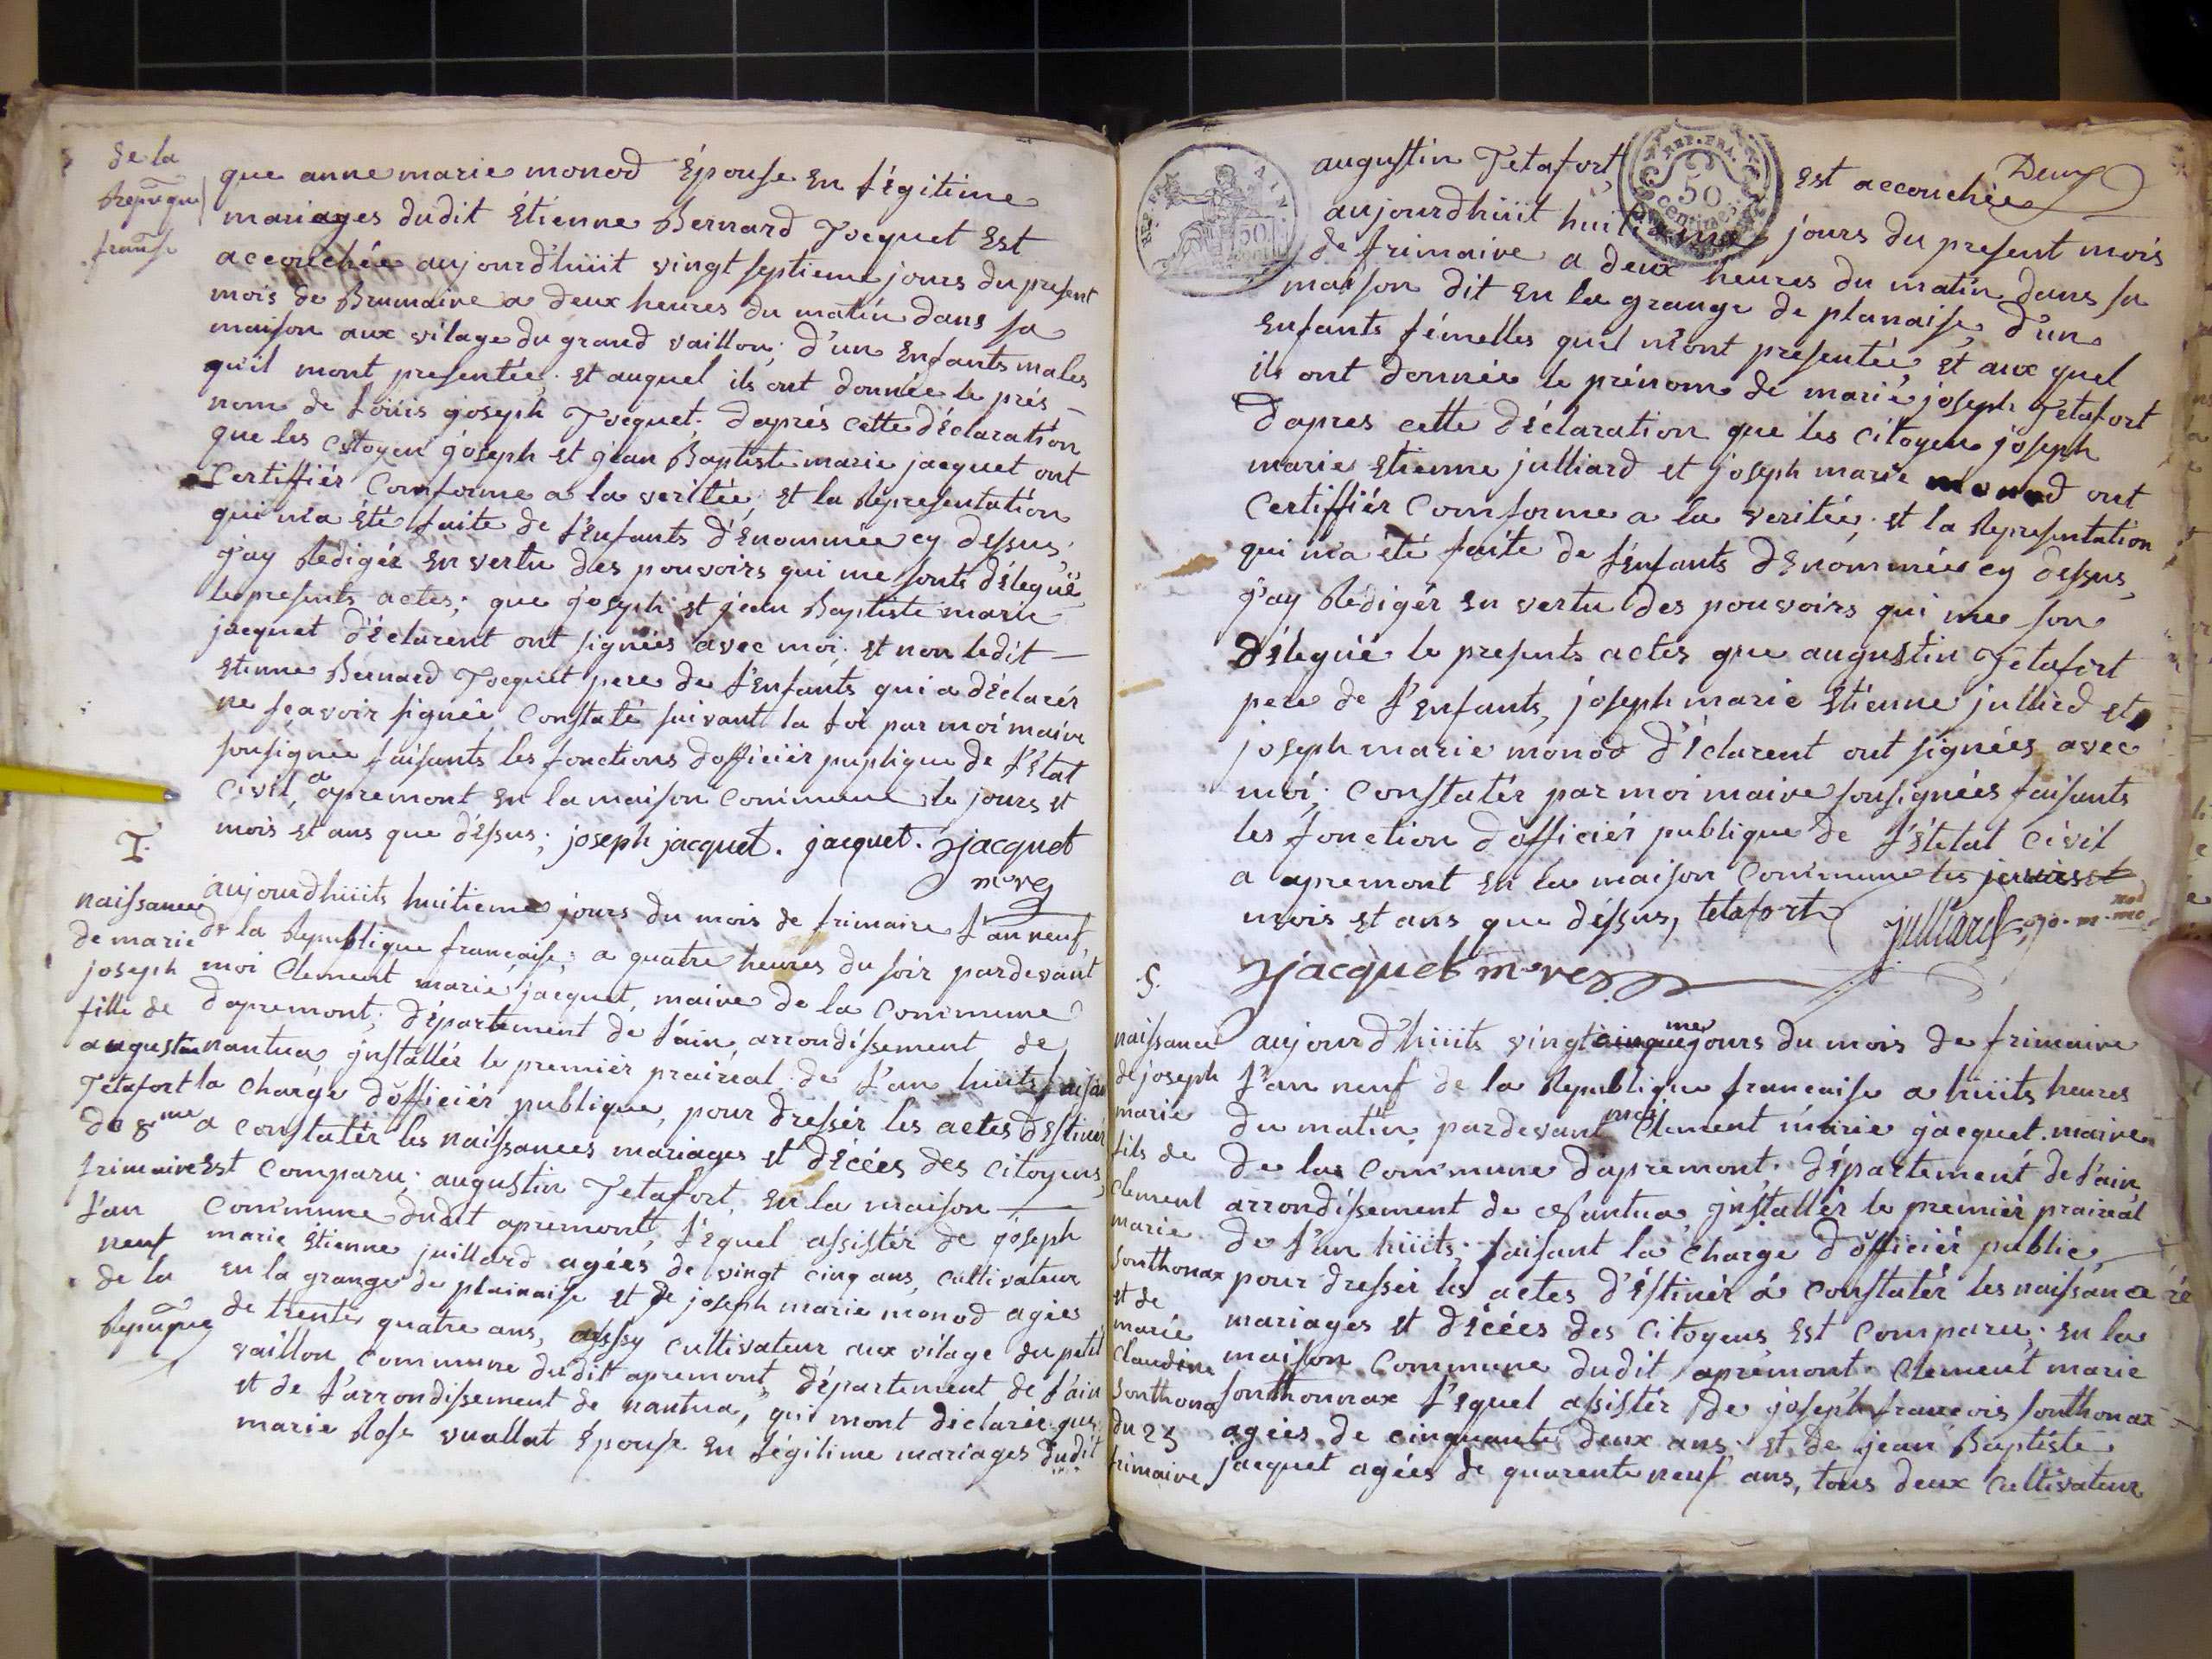 de la
Repuque
franse
que anne marie monod Épouse en légitime
mariages dudit Etienne Bernard Tocquet Est
accouchée aujourd'huiit vingt septieme jours du present
mois de Brumaire a deux heures du matin dans sa
maison aux vilage du grand vaillon; d'un Enfants males
qu'il mont presentée. et auquel ils ont donnée le prés-
nom de Loüis joseph Tocquet; daprés cette déclaration
que les citoyen joseph et jean Baptiste marie jacquet ont
Certiffiér Comforme a la veritée; et la Representation
qui m'a été faite de l'Enfants dénommée cy dessus;
j'ay Redigér en vertu des pouvoirs qui me sonts délegué
le presents actes; que joseph et jean Baptiste marie
jacquet d'éclarent ont signées avec moi; et non ledit —
Etienne Bernard Tocquet pere de l'Enfants qui a déclarér
ne sçavoir signée, Constaté suivant la Loi par moi maire
sousignée faisants les fonctions d'officiér puplique de l'État
Civil, a apremont en la maison Commune le jours et
mois et ans que dessus; joseph jacquet. jacquet. jacquet
mre
naissance
de marie
joseph
fille de
augustin
Tetafort
du 8me
frimaire
l'an
neuf
de la
Repuque
aujourdhuiits huitieme jours du mois de frimaire l'an neuf
de la Republique française; a quatre heures du soir pardevant
moi Clement marie jacquet, maire de la Commune
dapremont; département de l'ain, arrondissement de
nantua installér le premiér prairéal de l'an huits faisan
la Charge dofficiér publique, pour dressér les actes destinér
a Constatér les naissances mariages et décées des Citoyens,
Est Comparu; augustin Tetafort, en la maison —
Commune dudit apremont, léquel assistér de joseph
marie Étienne juillard agées de vingt cinq ans, cultivateur
en la grange de plainaise et de joseph marie monod agées
de trente quatre ans, aussy cultivateur aux vilage du petit
vaillon commune dudit apremont, département de l'ain
et de l'arrondissement de nantua, qui mont declarée que
marie Rose vuallat épouse en légitime mariages dudit
REP. FRA. AIN. 50
REP. FRA. 50 centimes
Deux
augustin Tetafort, Est accouchée
aujourdhuiit huitieme jours du present mois
de frimaire a deux heures du matin dans sa
maison dit en la grange de planaise, d'un
Enfants fémelles quil m'ont presentée, et aux quel
ils ont donnée le prénom de marie joseph Tetafort
Dapres cette déclaration que les Citoyen joseph
marie Etienne julliard et joseph marie monod ont
Certiffiér Comforme a la veritée; et la Representation
qui m'a été faite de l'Enfants dénommée cy dessus,
j'ay Rédigér en vertu des pouvoirs qui me son
délegüé le presents actes que augustin Tetafort
pere de l'Enfants, joseph marie Etienne julliard et
joseph marie monod d'éclarent ont signées avec
moi; Constatér par moi maire sousignées faisants
les fonction d'officiér publique de l'Étetat Civil
a apremont en la maison Commune les jours et
mois et ans que déssus, tetafort julliard jo. m. mo
nod
jacquet mre
5.
naissance
de joseph
marie
fils de
Clement
marie
Sonthonax
et de
marie
Claudine
Sonthona
du 25
frimaire
aujourd'huiits vingt cinquejours du mois de frimaire
me
l'an neuf de la Republique francaise a huiits heures
du matin, pardevant moi Clement marie jacquet. maire
de la Commune dapremont; département de l'ain,
arrondissement de Nantua, installér le premiér prairéal
de l'an huiits; faisant la Charge d'officiér public,
pour dressér les actes d'éstinér à Constatér les naissance
mariages et décées des Citoyens Est Comparu; en la
maison Commune dudit apremont. Clement marie
sonthonnax léquel assistér de joseph francois sonthonax
agées de cinquante deux ans. et de jean Baptiste
jacquet agées de quarente neuf ans, tous deux Cultivateur